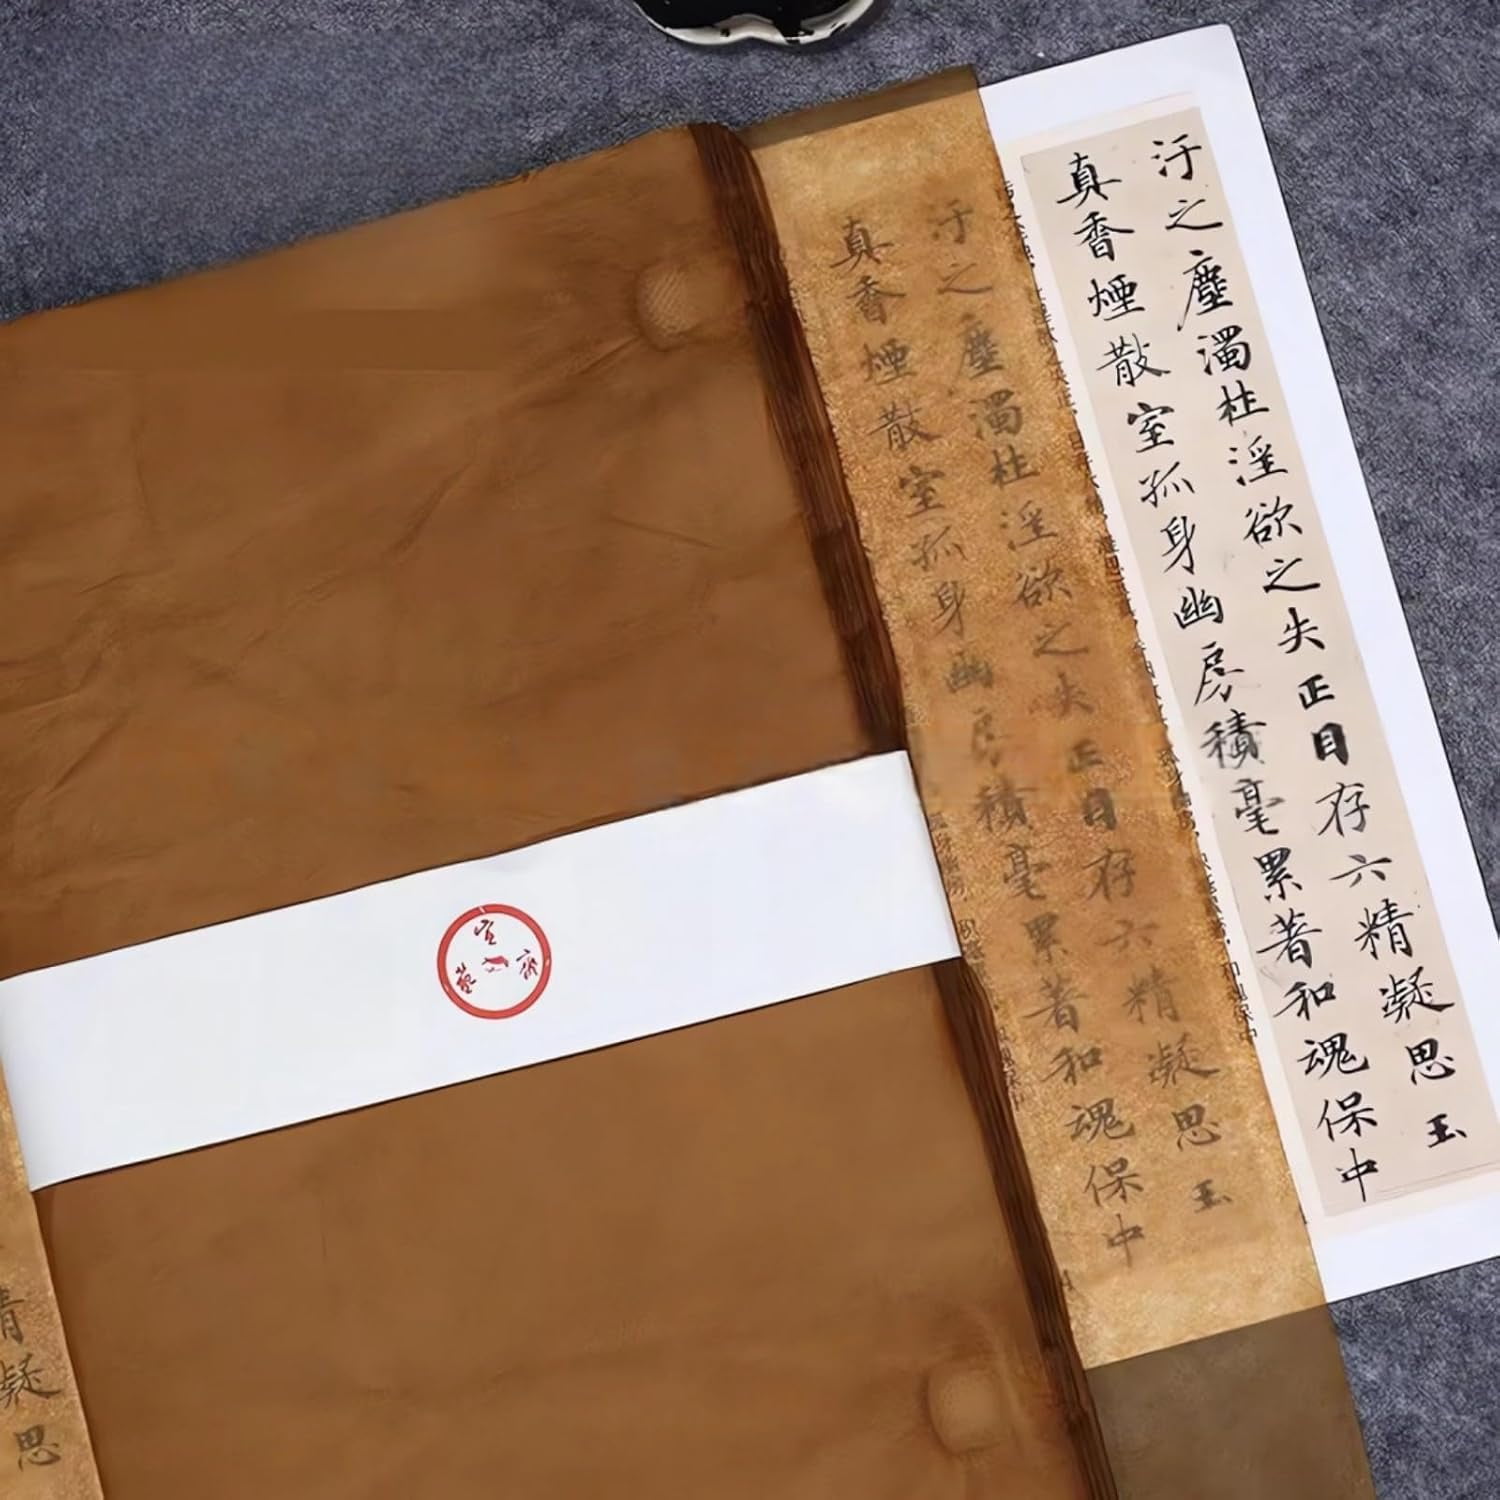 汙之塵濁杜淫欲之失正目存六精凝思玉
真香煙散室孤身幽房積毫累著和魂保中
汙之塵濁杜淫欲之失正目存六精凝思玉
真香煙散室孤身幽房積毫累著和魂保中
宣
精凝思